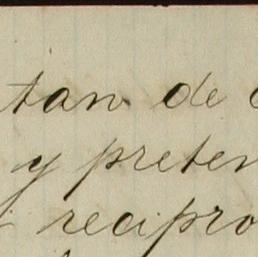 tan de
y preten
recipro